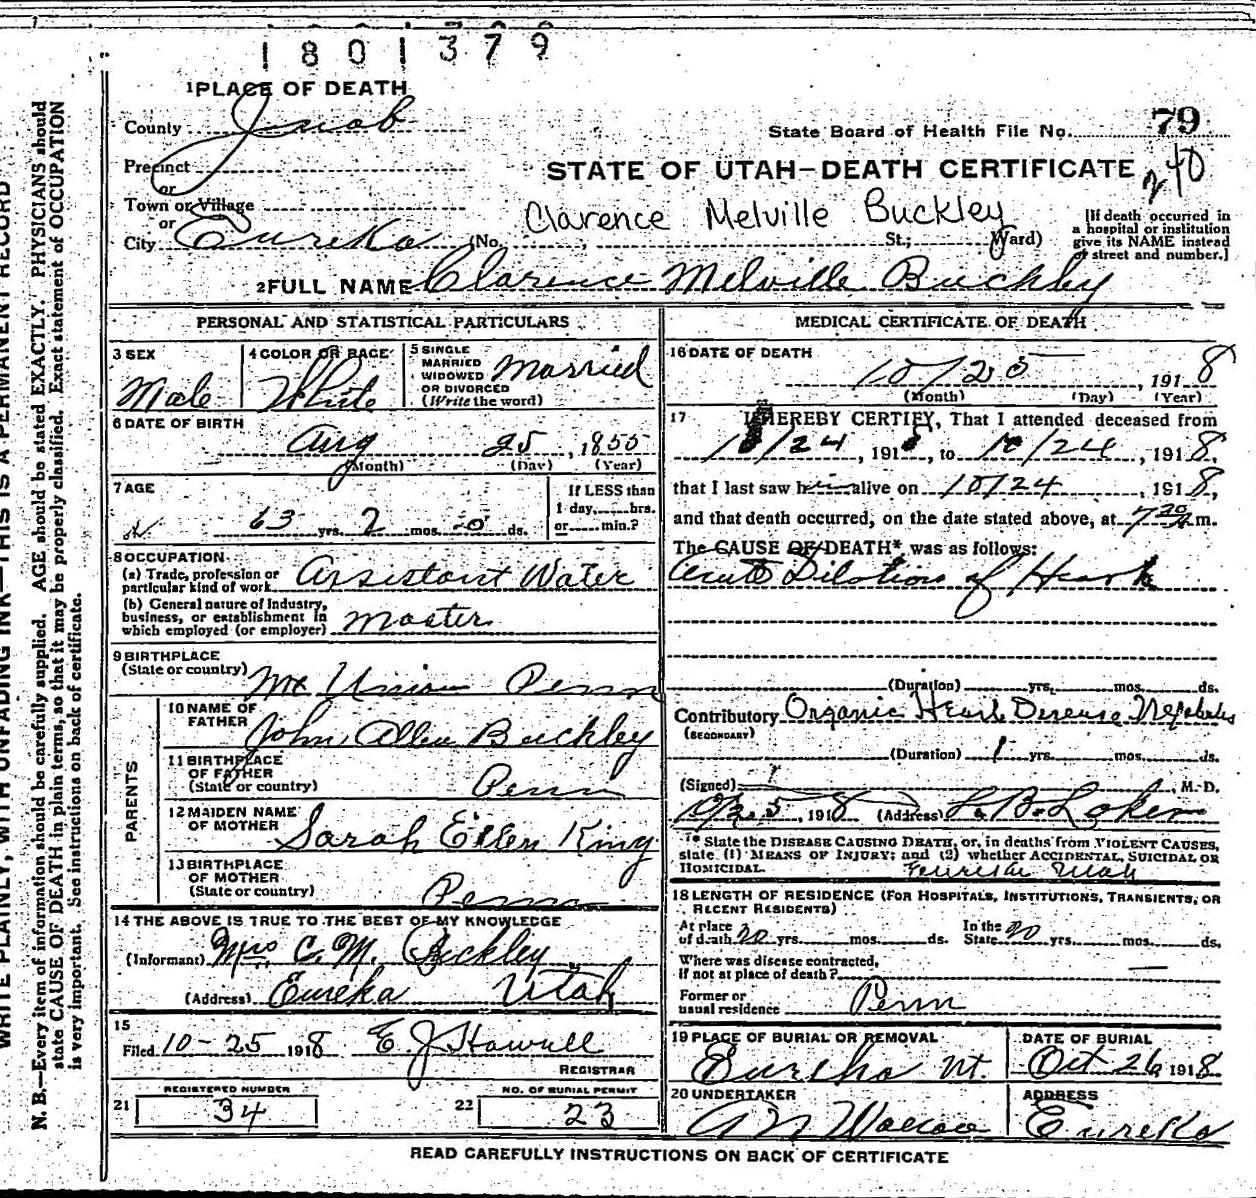 1801379
1 PLACE OF DEATH
County Juab
State Board of Health File No. 79
Precinct
STATE OF UTAH—DEATH CERTIFICATE 240
or
Town or Village
or
Clarence Melville Buckley
City Eureka (No. St.; Ward)
[If death occurred in
a hospital or institution
give its NAME instead
of street and number.]
2 FULL NAME Clarence Melville Buckley
PERSONAL AND STATISTICAL PARTICULARS
3 SEX
Male
4 COLOR OR RACE
White
5 SINGLE
MARRIED
WIDOWED
OR DIVORCED
(Write the word)
Married
6 DATE OF BIRTH
Aug 25, 1855
(Month) (Day) (Year)
7 AGE
63 yrs. 2 mos. 0 ds.
If LESS than
1 day, hrs.
or min.?
8 OCCUPATION
(a) Trade, profession or
particular kind of work Assistant Water
(b) General nature of Industry,
business, or establishment in
which employed (or employer) Master
9 BIRTHPLACE
(State or country) Mt Union Penn
PARENTS
10 NAME OF
FATHER John Allen Buckley
11 BIRTHPLACE
OF FATHER
(State or country) Penn
12 MAIDEN NAME
OF MOTHER Sarah Ellen King
13 BIRTHPLACE
OF MOTHER
(State or country) Penna
14 THE ABOVE IS TRUE TO THE BEST OF MY KNOWLEDGE
(Informant) Mrs C. M. Buckley
(Address) Eureka Utah
15
Filed 10-25 1918 E. J. Howell
REGISTRAR
REGISTERED NUMBER
21 34
NO. OF BURIAL PERMIT
22 23
MEDICAL CERTIFICATE OF DEATH
16 DATE OF DEATH
10/25, 1918
(Month) (Day) (Year)
17 I HEREBY CERTIFY, That I attended deceased from
10/24, 1918, to 10/24, 1918,
that I last saw him alive on 10/24, 1918,
and that death occurred, on the date stated above, at 7 30 a m.
The CAUSE OF DEATH* was as follows:
Acute Dilation of Heart
(Duration) yrs. mos. ds.
Contributory Organic Heart Disease
(SECONDARY)
(Duration) 1 yrs. mos. ds.
(Signed) , M. D.
10/25, 1918 (Address)
* State the DISEASE CAUSING DEATH, or, in deaths from VIOLENT CAUSES,
state (1) MEANS OF INJURY; and (2) whether ACCIDENTAL, SUICIDAL OR
HOMICIDAL. Eureka Utah
18 LENGTH OF RESIDENCE (FOR HOSPITALS, INSTITUTIONS, TRANSIENTS, OR
RECENT RESIDENTS)
At place
of death 20 yrs. mos. ds.
In the
State 20 yrs. mos. ds.
Where was disease contracted,
if not at place of death?
Former or
usual residence Penn
19 PLACE OF BURIAL OR REMOVAL
Eureka Ut.
DATE OF BURIAL
Oct 26, 1918
20 UNDERTAKER
ADDRESS
Eureka
READ CAREFULLY INSTRUCTIONS ON BACK OF CERTIFICATE
WRITE PLAINLY, WITH UNFADING INK—THIS IS A PERMANENT RECORD
N. B.—Every item of information should be carefully supplied. AGE should be stated EXACTLY. PHYSICIANS should
state CAUSE OF DEATH in plain terms, so that it may be properly classified. Exact statement of OCCUPATION
is very important. See instructions on back of certificate.